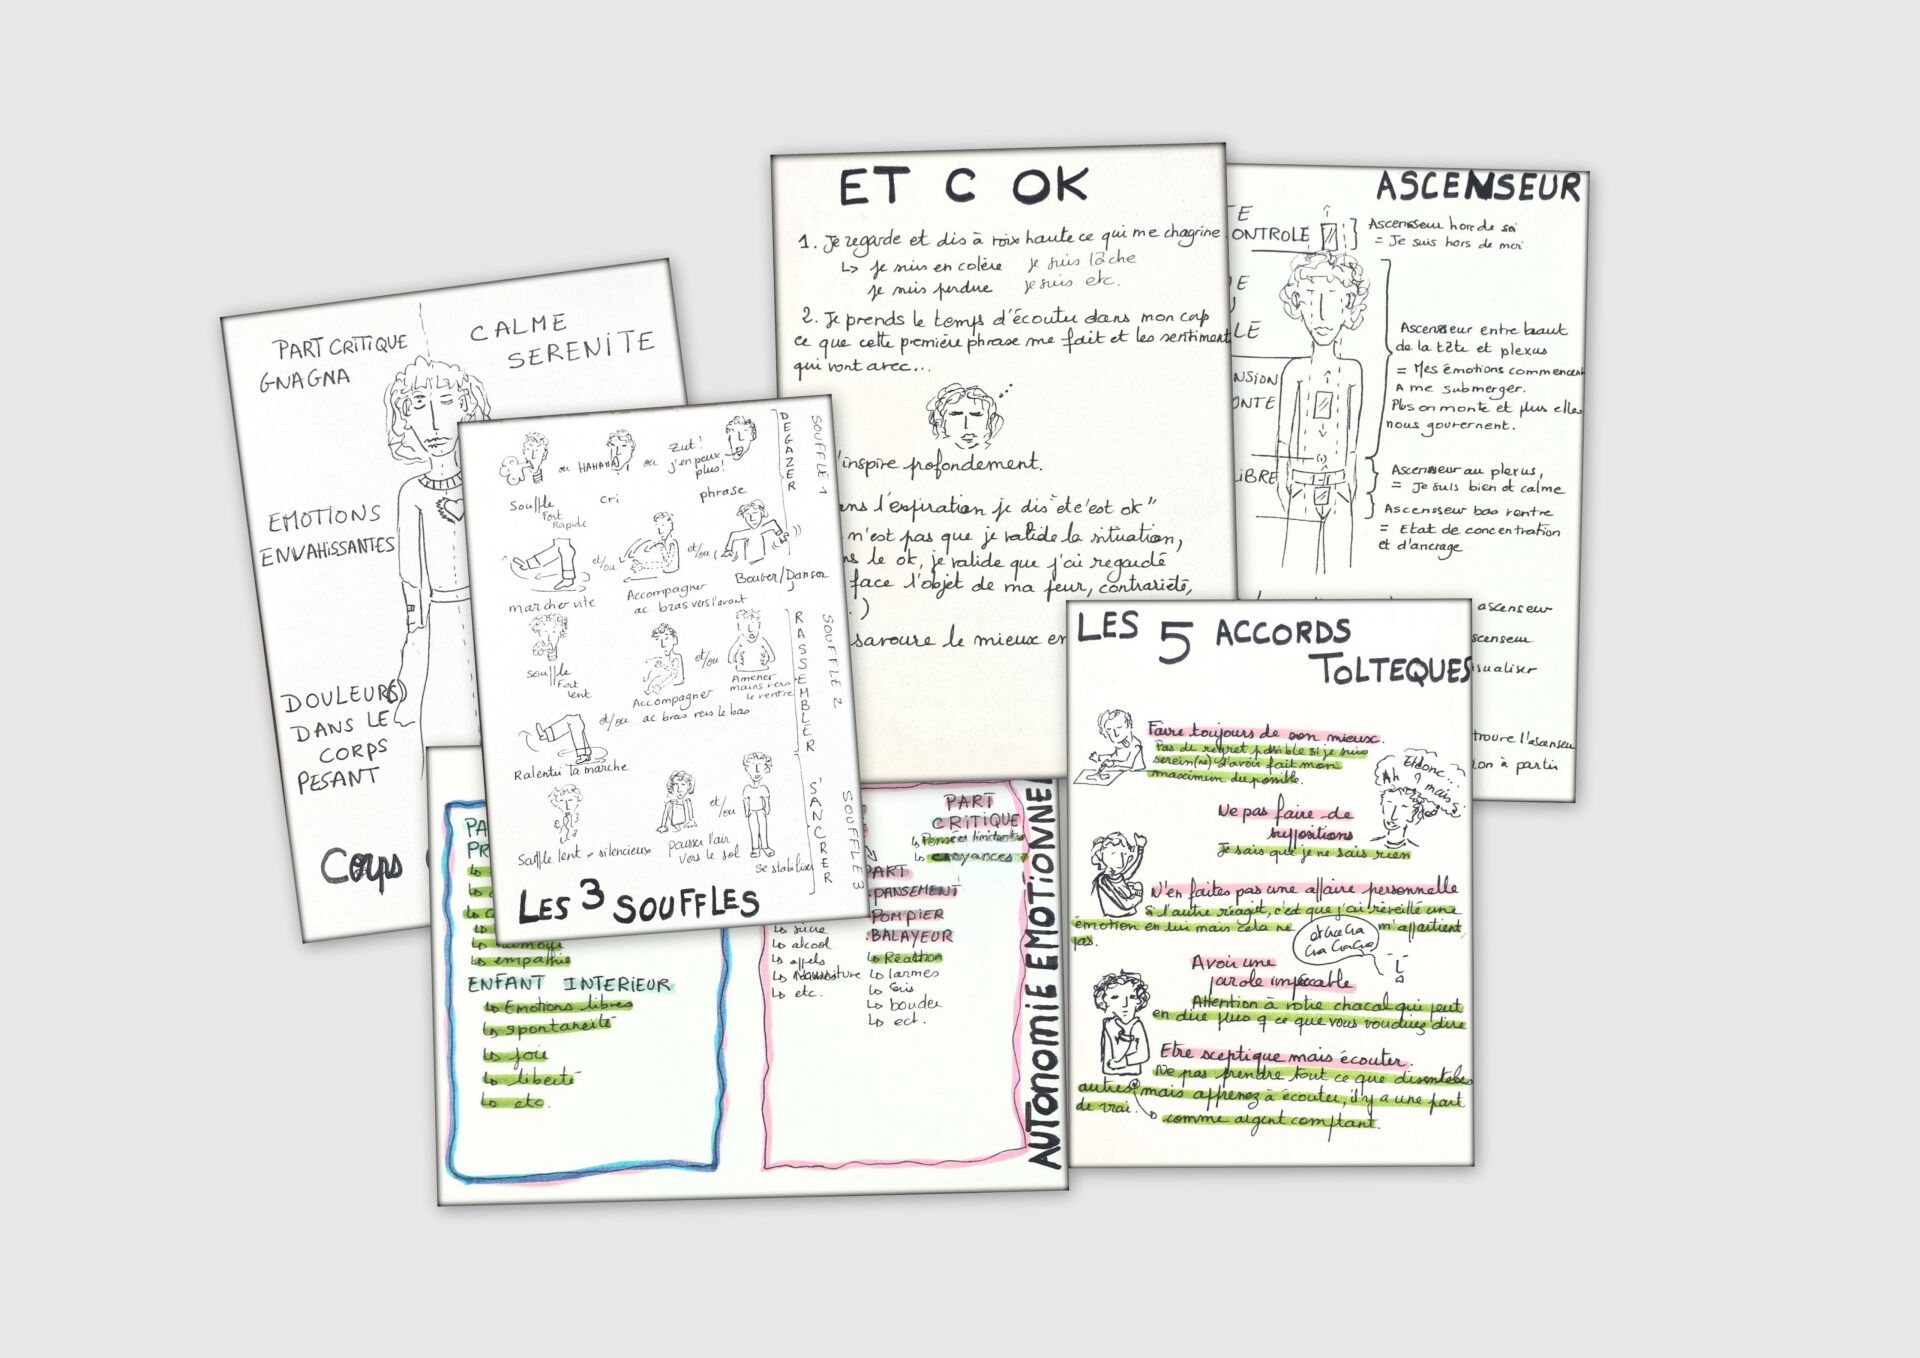 PART CRITIQUE
GNAGNA
CALME
SERENITE
EMOTIONS
ENVAHISSANTES
DOULEUR(S)
DANS LE
CORPS
PESANT
Corps
ou HAHAHA ou
Zut!
j'en peux
plus!
Souffle
Fort
Rapide
cri
phrase
DEGAZER
SOUFFLE 1
et/ou
et/ou
marcher vite
Accompagner
ac bras vers l'avant
Bouger/Danser
souffle
Fort
lent
et/ou
Accompagner
ac bras vers le bas
Amener
mains vers
le ventre
et/ou
Ralentir la marche
RASSEMBLER
SOUFFLE 2
et/ou
Souffle lent silencieux
pousser l'air
vers le sol
se stabiliser
S'ANCRER
SOUFFLE 3
LES 3 SOUFFLES
ET C OK
1. Je regarde et dis à voix haute ce qui me chagrine
↳ je suis en colère je suis lâche
je suis perdue je suis etc.
2. Je prends le temps d'écouter dans mon corp
ce que cette première phrase me fait et les sentiment
qui vont avec...
'inspire profondement.
ans l'expiration je dis "et c'est ok"
n'est pas que je valide la situation,
le ok, je valide que j'ai regardé
face l'objet de ma peur, contrariété,
.)
savoure le mieux en
ASCENSEUR
TE
ONTROLE
Ascenseur hors de soi
= Je suis hors de moi
E
LE
NSION
ONTE
Ascenseur entre haut
de la tête et plexus
= Mes émotions commencent
A me submerger.
Plus on monte et plus elles
nous gouvernent.
LIBRE
Ascenseur au plexus,
= Je suis bien et calme
Ascenseur bas ventre
= Etat de concentration
et d'ancrage
ascenseur
scenseur
isualiser
trouve l'ascenseu
ion à partir
PA
PR
↳ empathie
ENFANT INTERIEUR
↳ Emotions libres
↳ spontanéité
↳ joie
↳ liberté
↳ etc.
PART
CRITIQUE
↳ Pensées limitantes
↳ croyances
PART
PANSEMENT
POMPIER
BALAYEUR
↳ Réaction
↳ larmes
↳ cris
↳ bouder
↳ ect.
↳ sucre
↳ alcool
↳ appels
↳ Nourriture
↳ etc.
AUTONOMIE EMOTIONNE
LES 5 ACCORDS
TOLTEQUES
Faire toujours de son mieux.
Pas de regret possible si je suis
serein(ne) d'avoir fait mon
maximum du possible.
Et donc..
Ah ? mais si
Ne pas faire de
suppositions
Je sais que je ne sais rien
N'en faites pas une affaire personnelle
Si l'autre réagit, c'est que j'ai réveillé une
émotion en lui mais cela ne m'appartient
pas.
Avoir une
parole impeccable
Attention à votre chacal qui peut
en dire plus q ce que vous voudriez dire
Etre sceptique mais écouter.
Ne pas prendre tout ce que disent les
autres mais apprenez à écouter, il y a une part
de vrai.
comme argent comptant.